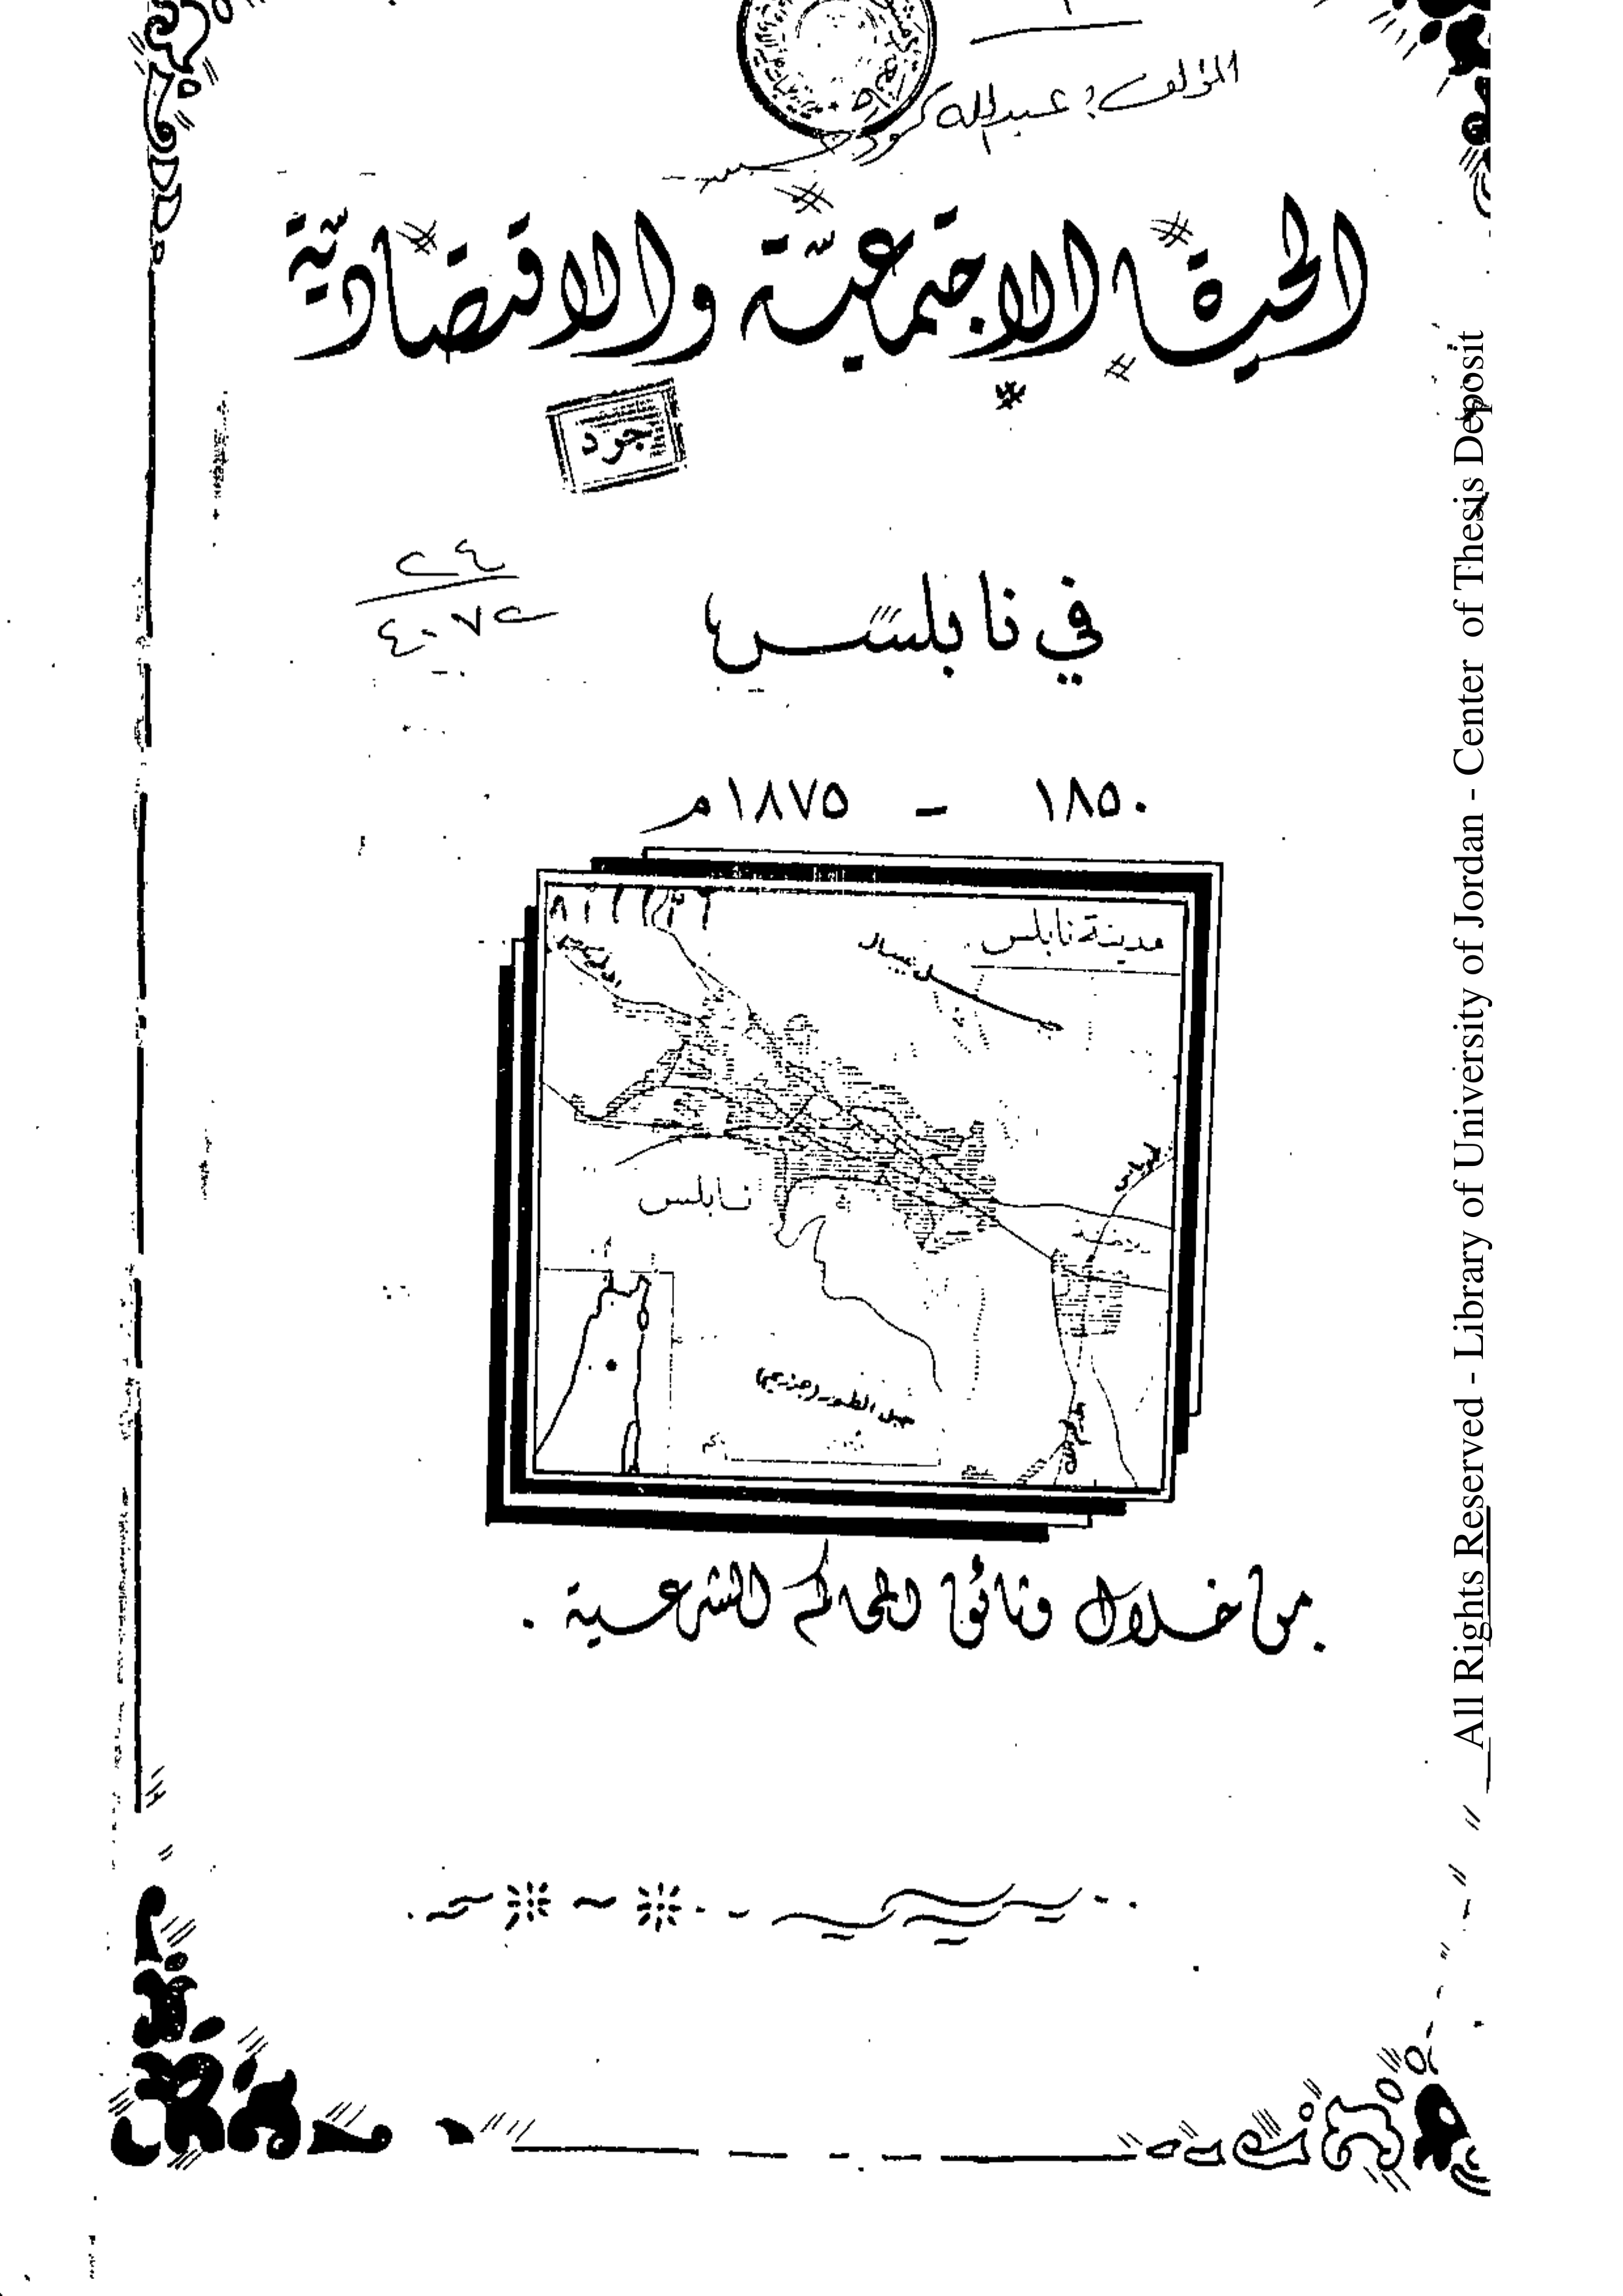 المؤلف: عبدالله
الحياة الاجتماعية والاقتصادية
جرد
٢٤
٤٠٧٢
في نابلس
١٨٥٠ - ١٨٧٥م
مدينة نابلس
نابلس
جبل الطور (جرزيم)
من خلال وثائق المحاكم الشرعية .
All Rights Reserved - Library of University of Jordan - Center of Thesis Deposit